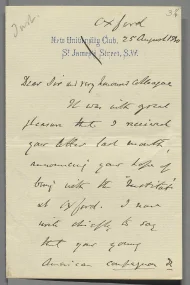 36
Oxford
New University Club,
St James's Street, S.W.
25 August 1880
Dear Sir and very honoured Colleague
It was with great
pleasure that I received
your letter last month,
announcing your hope of
being with the "Institute"
at Oxford. I now
write chiefly to say
that your young
American compagnon